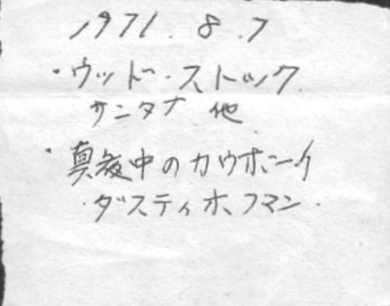 1971.8.7
・ウッド・ストック
サンタナ 他
・真夜中のカウボーイ
・ダスティホフマン・